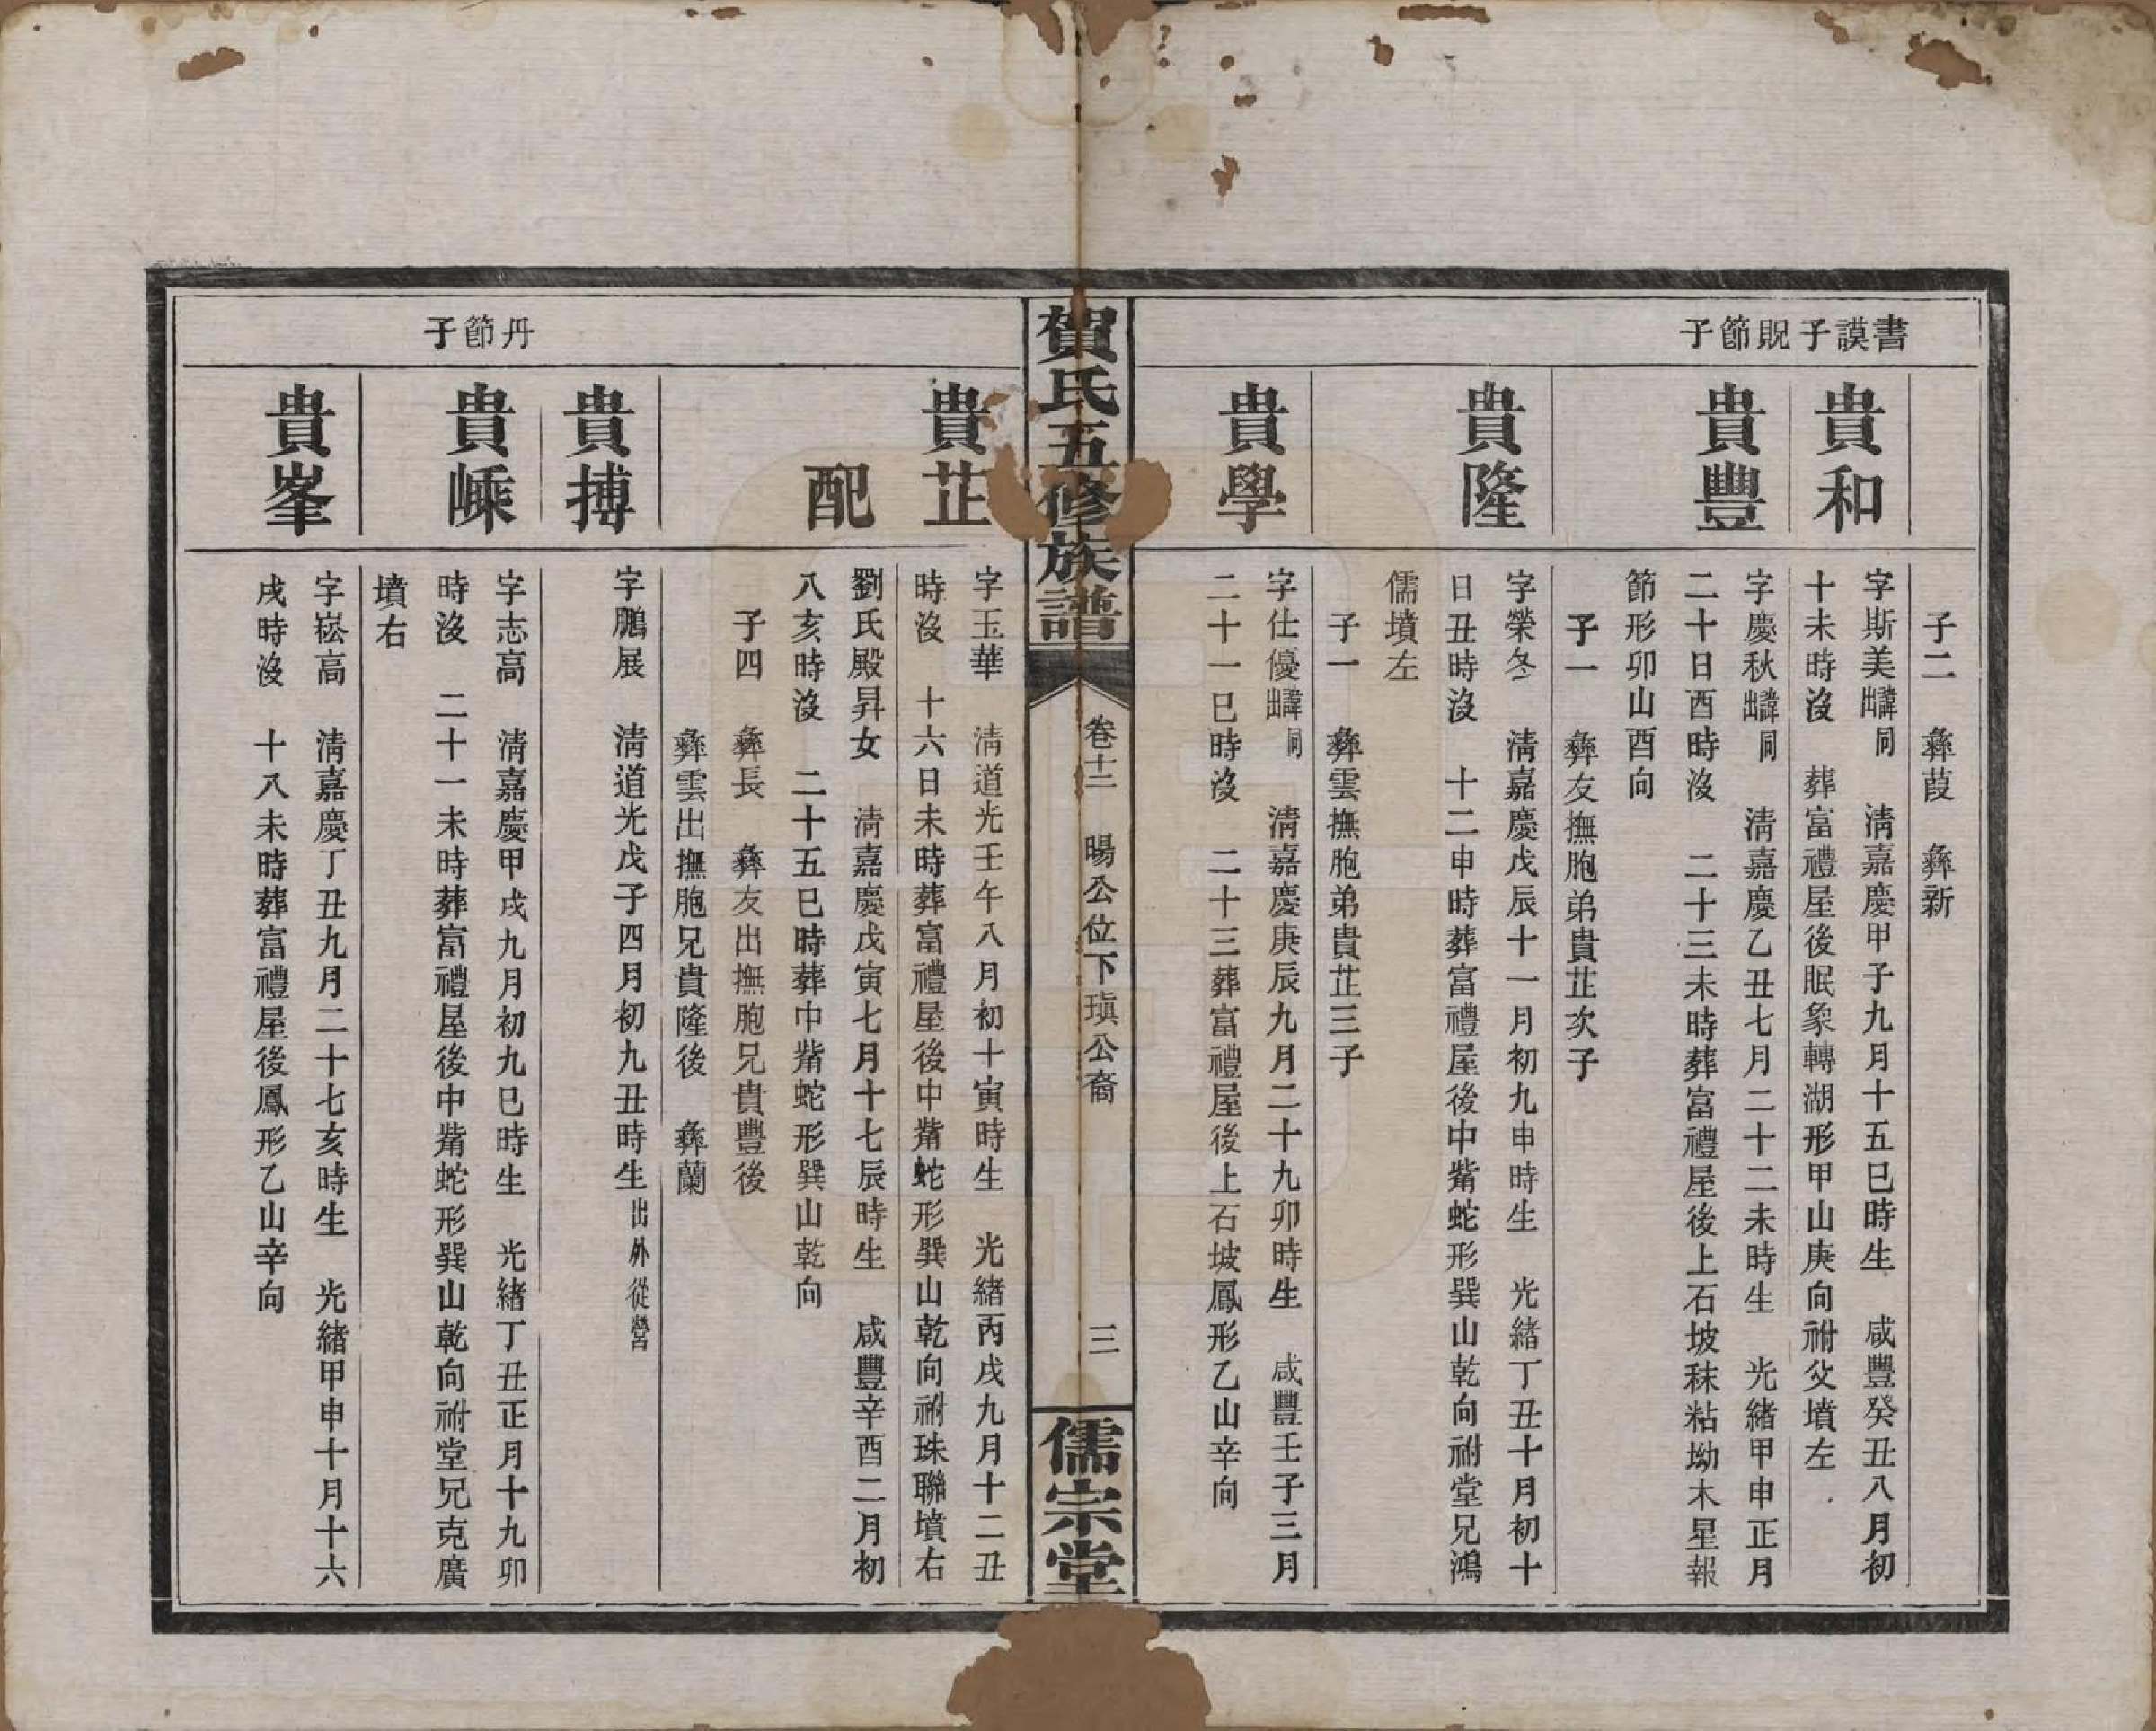 書謨子貺節子
子二　彝葭　彝新
貴和
字斯美諱出同　清嘉慶甲子九月十五巳時生　咸豐癸丑八月初
十未時沒　葬富禮屋後眠象轉湖形甲山庚向祔父墳左
貴豐
字慶秋諱出同　清嘉慶乙丑七月二十二未時生　光緒甲申正月
二十日酉時沒　二十三未時葬富禮屋後上石坡秣粘坳木星報
節形卯山酉向
子一　彝友撫胞弟貴芷次子
貴隆
字榮冬　清嘉慶戊辰十一月初九申時生　光緒丁丑十月初十
日丑時沒　十二申時葬富禮屋後中觜蛇形巽山乾向祔堂兄鴻
儒墳左
子一　彝雲撫胞弟貴芷三子
貴學
字仕優諱出同　清嘉慶庚辰九月二十九卯時生　咸豐壬子三月
二十一巳時沒　二十三葬富禮屋後上石坡鳳形乙山辛向
賀氏五修族譜
卷十二　暘公位下瑱公裔
三
儒宗堂
丹節子
貴芷
字玉華　清道光壬午八月初十寅時生　光緒丙戌九月十二丑
時沒　十六日未時葬富禮屋後中觜蛇形巽山乾向祔珠聯墳右
配
劉氏殿昇女　清嘉慶戊寅七月十七辰時生　咸豐辛酉二月初
八亥時沒　二十五巳時葬中觜蛇形巽山乾向
子四　彝長　彝友出撫胞兄貴豐後
彝雲出撫胞兄貴隆後　彝蘭
貴搏
字鵬展　清道光戊子四月初九丑時生出外從營
貴嵊
字志高　清嘉慶甲戌九月初九巳時生　光緒丁丑正月十九卯
時沒　二十一未時葬富禮屋後中觜蛇形巽山乾向祔堂兄克廣
墳右
貴峯
字崧高　清嘉慶丁丑九月二十七亥時生　光緒甲申十月十六
戌時沒　十八未時葬富禮屋後鳳形乙山辛向